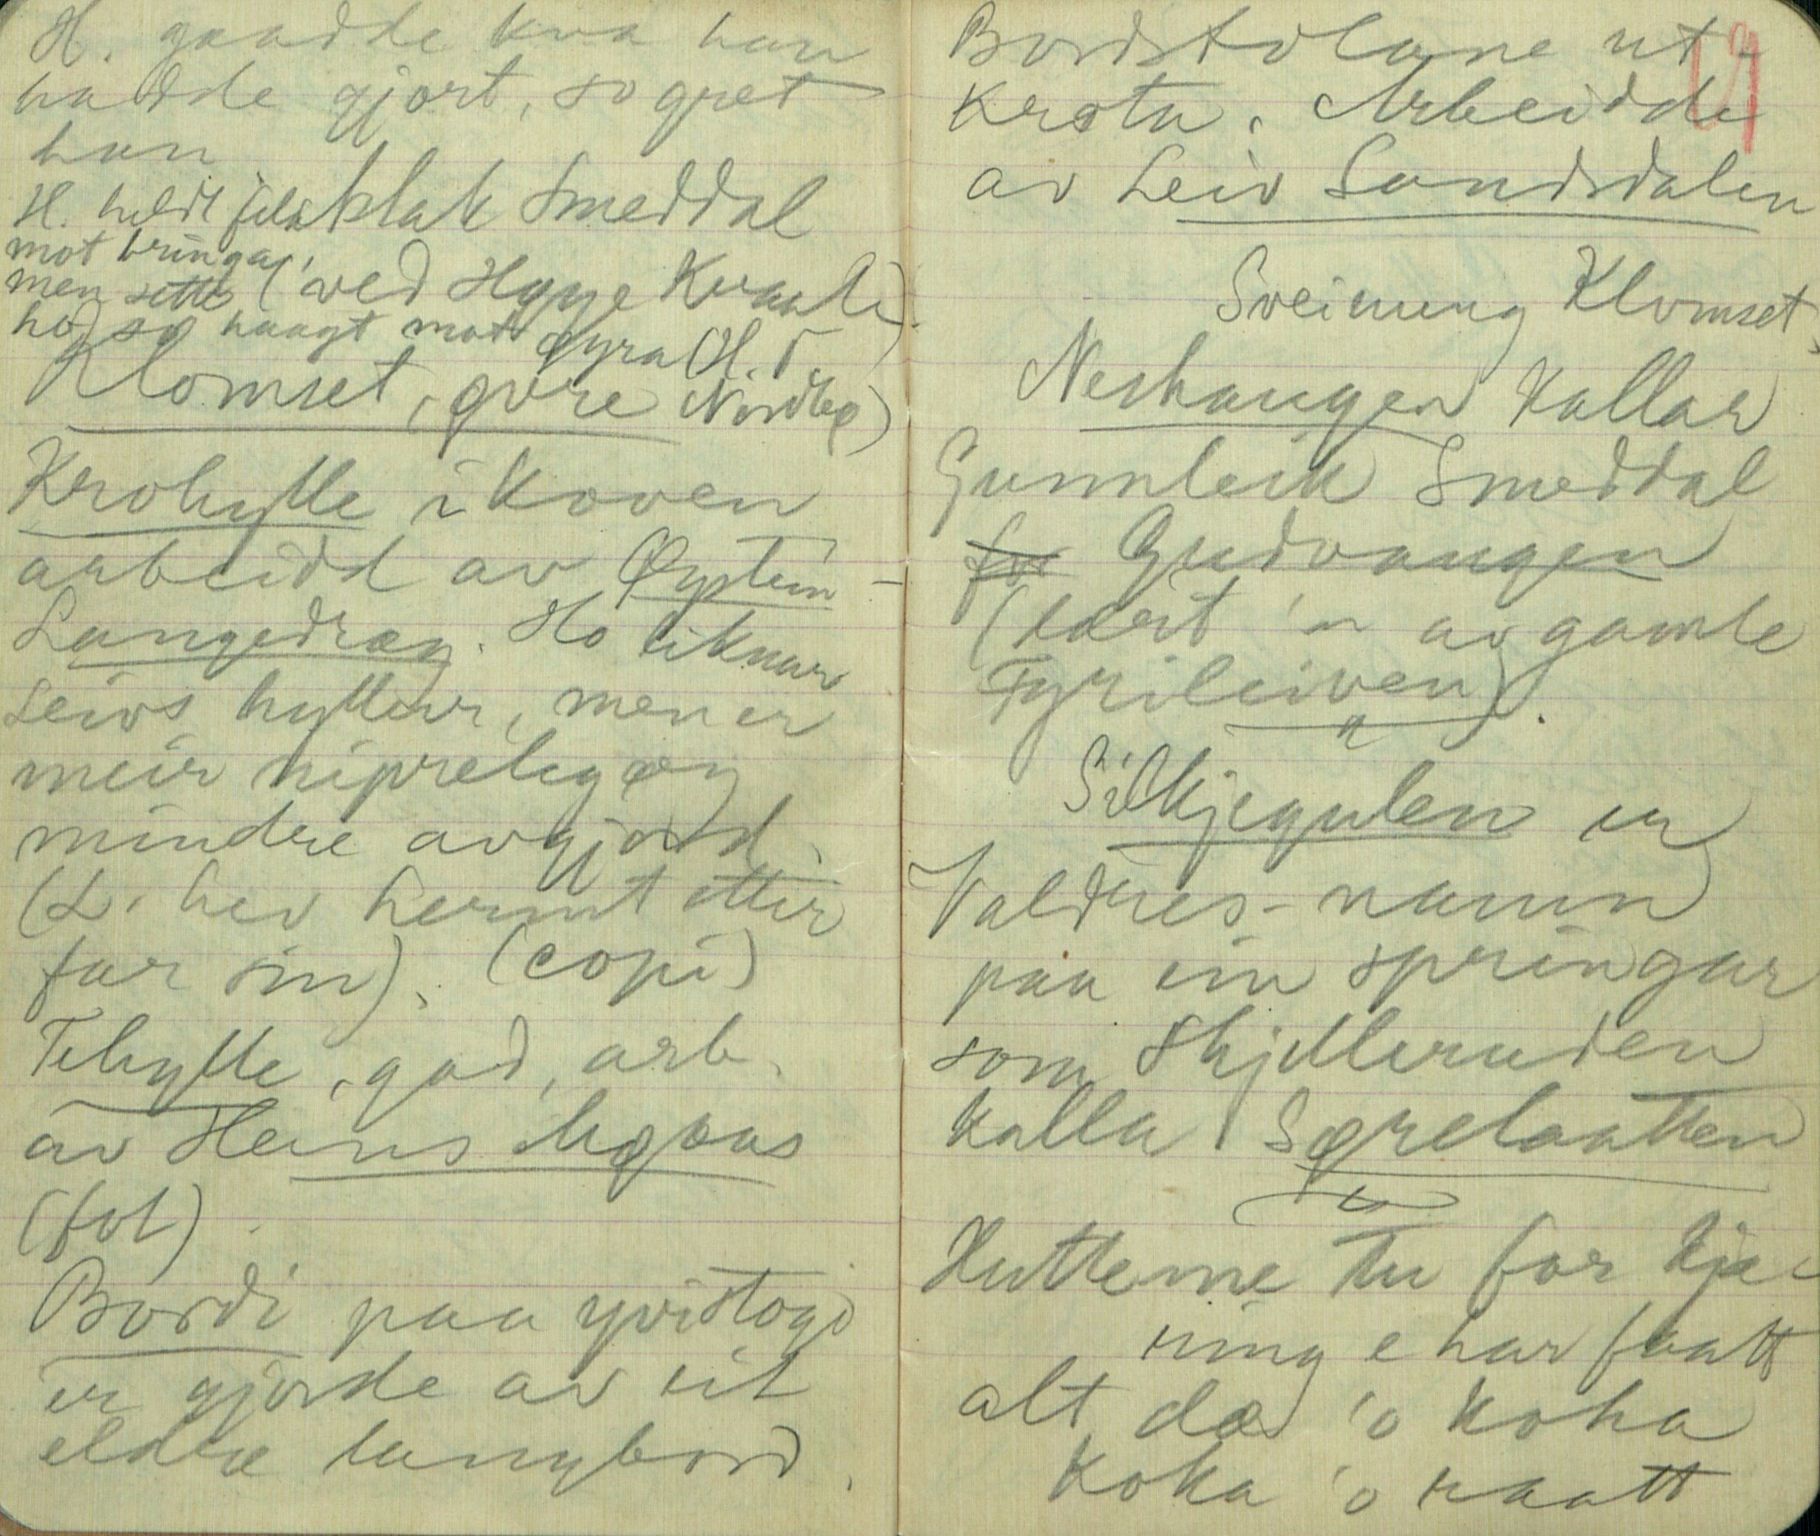 H. gaadde kva han
hadde gjort, so gret
han.
H. heldt fela
mot bringa,
men sette
ho so haagt mot øyra (H. F.
Nordbø)
Aslak Smeddal
(ved Hyge Kraali).
Klomset, gøre
Krohylle i Koven
arbeidd av Øystein
Langedrag. Ho liknar
Leivs hyllur, men er
meir nipreleg og
mindre avgjord.
(L. hev hermt etter
far sin). (copi)
Tehylle, god, arb.
av Heins Aagaas
(fot).
Bordi paa yvistogo
er gjorde av eit
eldre langbord.
19
Bordstolane ut-
krota. Arbeidde
av Leiv Sandsdalen
Sveinung Klomset.
Neshaugen kallar
Gunnleik Smeddal
for Gudvangen
(lært 'n av gamle
Fyrileiven).
Silkjegulen er
Valdres-namn
paa ein springar
som Skjelleruden
kalla Sørelaatten
Kutteme tu for kjæ-
ring e har faatt
alt dæ 'o koka
koka 'o raatt